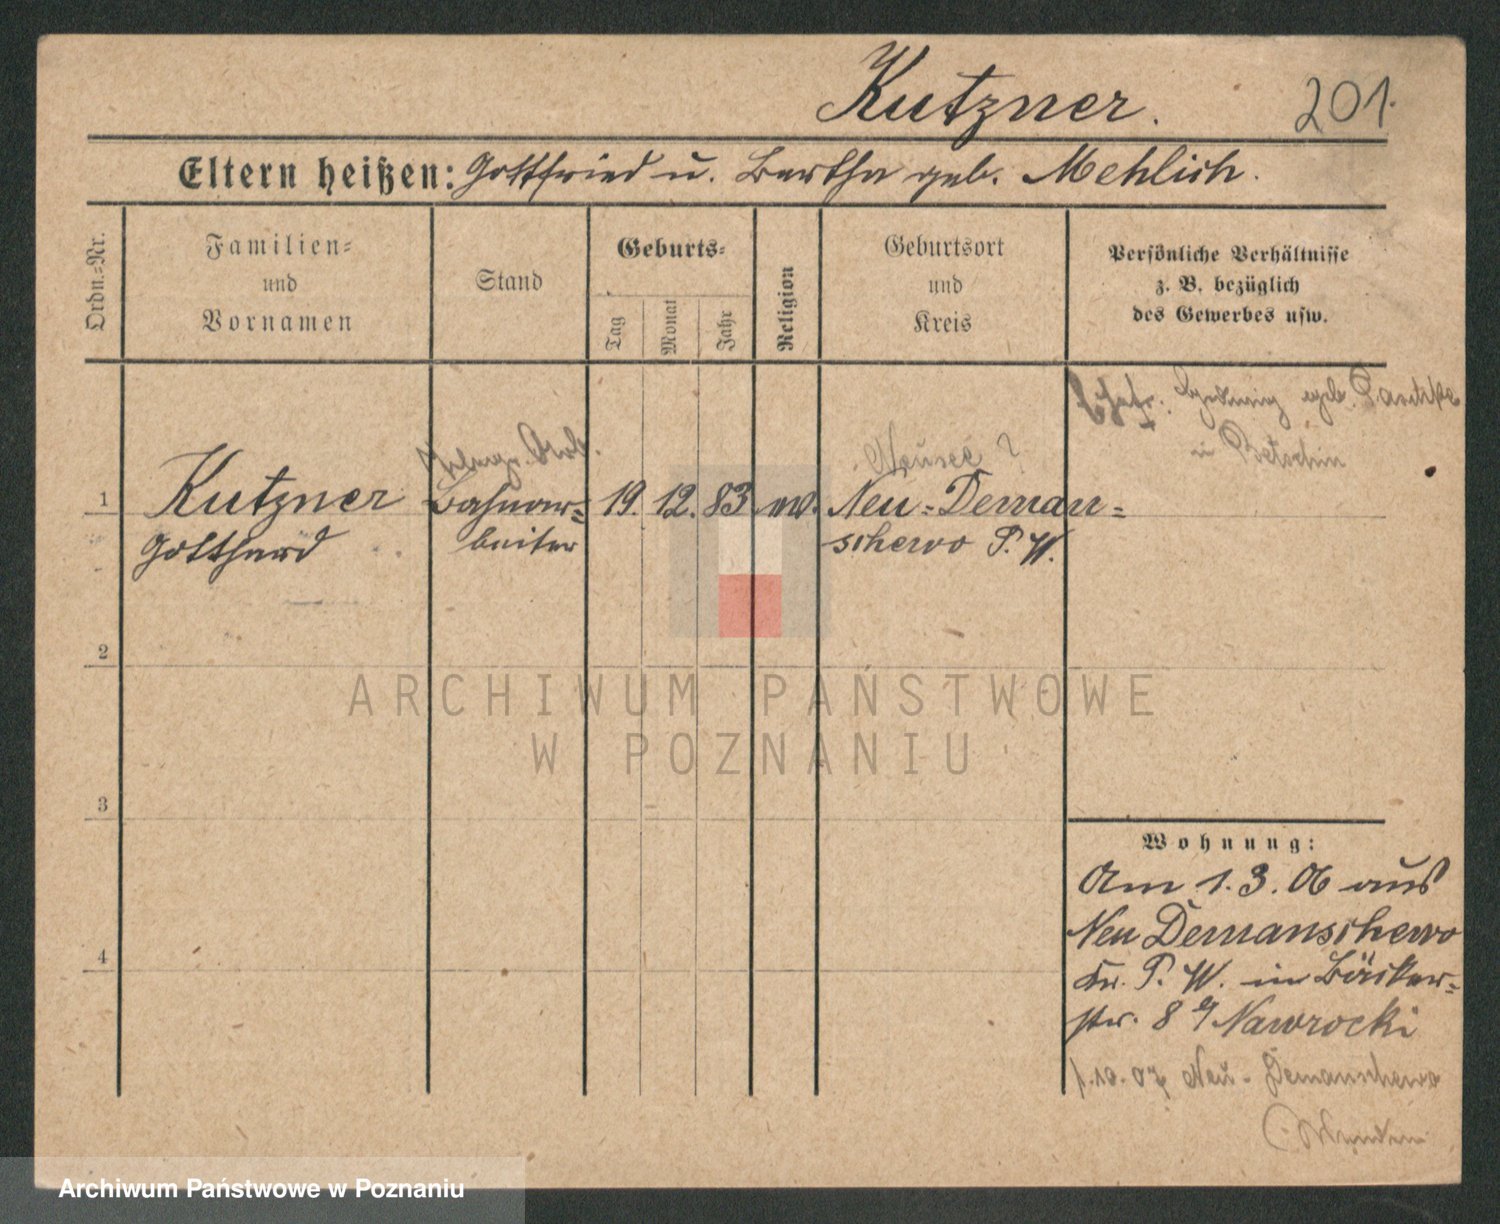 Kutzner. 201.
Eltern heißen: Gottfried u. Bertha geb. Mehlich.
Ordn.=Nr.
Familien=
und
Vornamen
Stand
Geburts=
Tag
Monat
Jahr
Religion
Geburtsort
und
Kreis
Persönliche Verhältnisse
z. B. bezüglich
des Gewerbes usw.
Ehefr.: Hedwig geb.
in Betschin
Arb.
Neusee ?
1 Kutzner Bahnar= 19. 12. 83 ev. Neu=Deman=
Gotthard beiter schewo P. W.
2
3
4
Wohnung:
Am 1. 3. 06 aus
Neu Demanschewo
Kr. P. W. in Bäcker=
str. 8 b/ Nawrocki
1.10.07 Neu-Demanschewo
ARCHIWUM PAŃSTWOWE
W POZNANIU
Archiwum Państwowe w Poznaniu